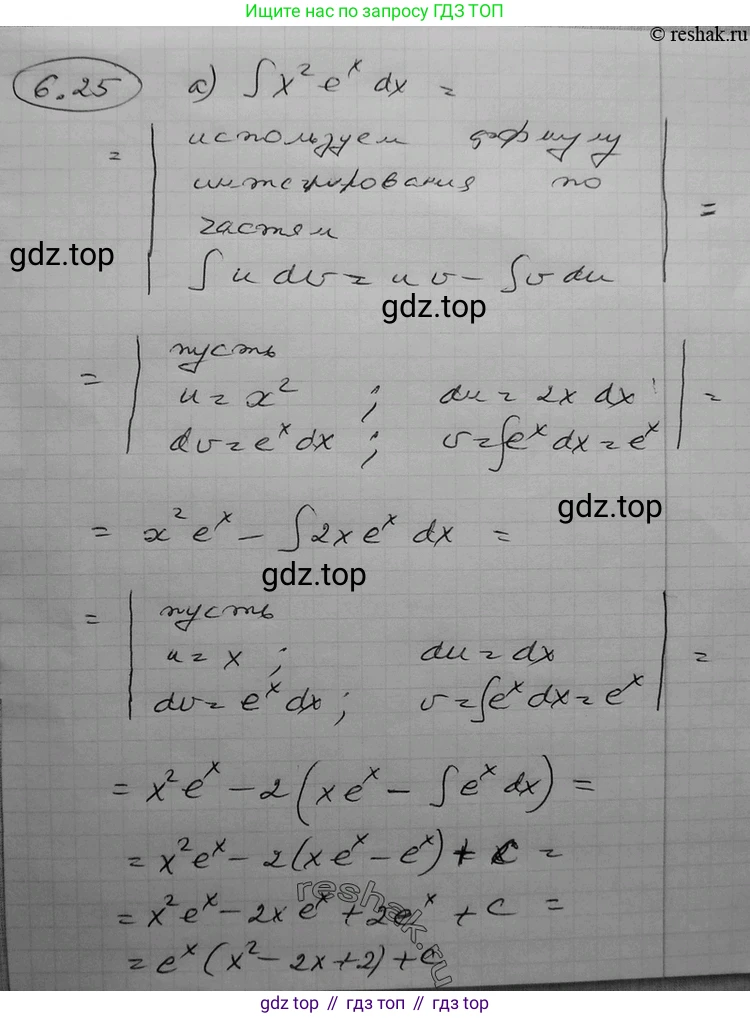 Ищите нас по запросу ГДЗ ТОП
© reshak.ru
6.25 а) ∫ x² eˣ dx =
= | используем формулу
интегрирования по
частям
∫ u dv = uv − ∫ v du | =
gdz.top
gdz.top
= | пусть
u = x² ; du = 2x dx
dv = eˣ dx ; v = ∫ eˣ dx = eˣ | =
gdz.top
= x² eˣ − ∫ 2x eˣ dx =
gdz.top
= | пусть
u = x ; du = dx
dv = eˣ dx ; v = ∫ eˣ dx = eˣ | =
= x² eˣ − 2 (x eˣ − ∫ eˣ dx) =
= x² eˣ − 2 (x eˣ − eˣ) + C =
= x² eˣ − 2x eˣ + 2eˣ + C =
= eˣ (x² − 2x + 2) + C
reshak.ru
gdz.top // гдз топ // gdz.top